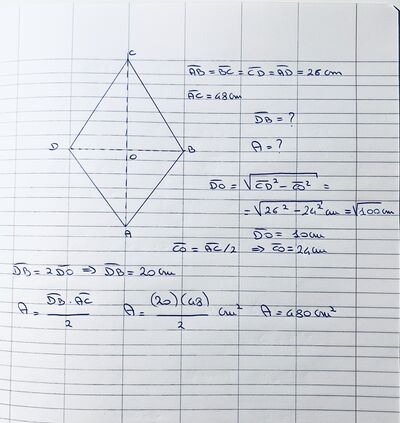 C
AB̅ = BC̅ = CD̅ = AD̅ = 26 cm
AC̅ = 48 cm
DB̅ = ?
D
B
O
A = ?
DO̅ = √CD̅² - CO̅² =
= √26² - 24² cm = √100 cm
DO̅ = 10 cm
A
CO̅ = AC̅/2 ⇒ CO̅ = 24 cm
DB̅ = 2DO̅ ⇒ DB̅ = 20 cm
A = DB̅ · AC̅ / 2 A = (20)(48) / 2 cm² A = 480 cm²